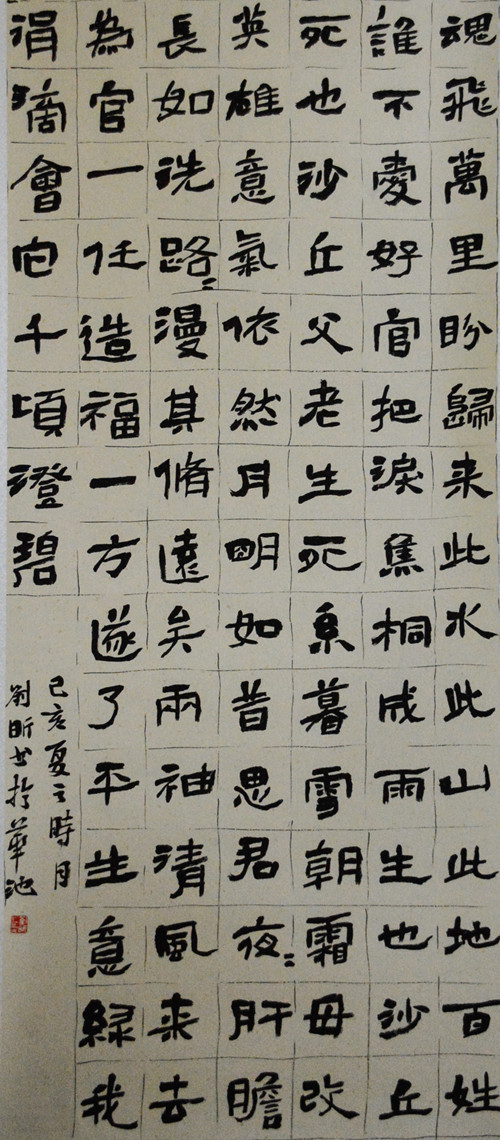 魂飛萬里盼歸来此水此山此地百姓
誰不愛好官把淚焦桐成雨生也沙丘
死也沙丘父老生死系暮雪朝霜毋改
英雄意氣依然月明如昔思君夜〻肝膽
長如洗路〻漫其脩遠矣兩袖清風来去
為官一任造福一方遂了平生意緑我
涓滴會它千頃澄碧
己亥夏之時月
劉昕书於華池